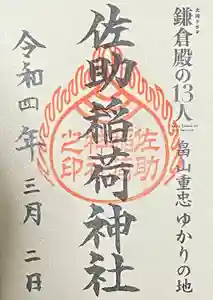 大河ドラマ
鎌倉殿の13人
畠山重忠ゆかりの地
佐助稲荷神社
佐助
之印
令和四年三月二日